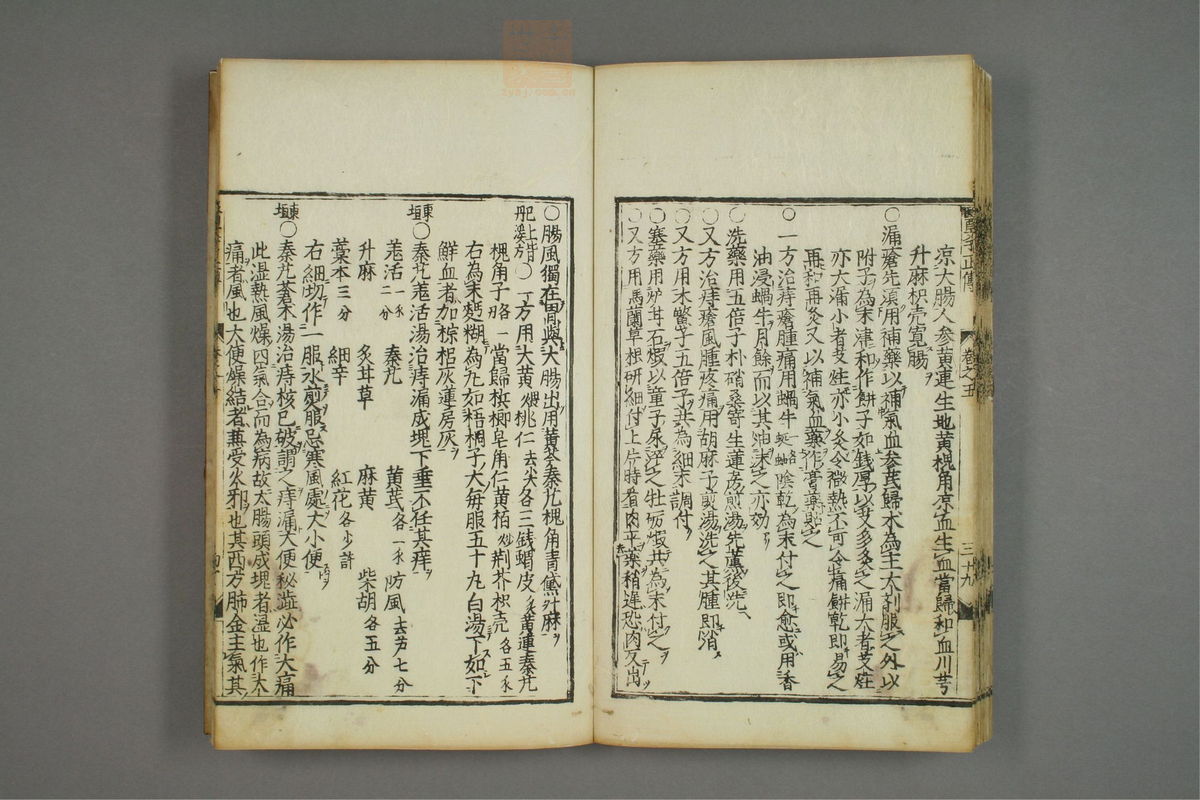 凉大腸人参黄連生地黄槐角凉血生血當歸和血川芎
升麻枳壳寛腸
○漏瘡先須用補藥以補氣血参芪歸朮為主大剤服之外以
附子為末津和作餅子如銭厚以艾多灸之漏大者艾炷
亦大漏小者艾炷亦小灸令微熱不可令痛餅乾即易之
再和再灸又以補氣血藥作膏藥貼之
○一方治痔瘡腫痛用蝸牛陰乾為末付之即愈或用香
油浸蝸牛月餘而以其油抹之亦効
○洗藥用五倍子朴硝桑寄生蓮房煎湯先薫後洗
○又方治痔瘡風腫疼痛用胡麻子煎湯洗之其腫即消
○又方用木鱉子五倍子共為細末調付
○塞藥用炉甘石煅以童子尿淬之牡蛎煅共為末付之
○又方用馬蘭草根研細付上片時看肉平藥稍遅恐肉反出
○腸風獨在胃與大腸出用黄芩秦艽槐角青黛升麻
○一方用大黄煨桃仁去尖各三銭蝟皮黄連秦艽
槐角子各一當歸梹榔皂角仁黄栢炒荆芥枳壳各五
右為末麪糊為丸如梧桐子大毎服五十丸白湯下如下
鮮血者加棕梠灰蓮房灰
東垣○秦艽羗活湯治痔漏成塊下垂不任其痒
羗活一 二分 秦艽 黄芪各一 防風去芦七分
升麻 炙甘草 麻黄 柴胡各五分
藁本三分 細辛 紅花各少許
右細切作一服水煎服忌寒風處大小便
東垣○秦艽蒼朮湯治痔核已破謂之痔漏大便秘澁必作大痛
此湿熱風燥四氣合而為病故大腸頭成塊者湿也作大
痛者風也大便燥結者兼受火邪也其西方肺金主氣其